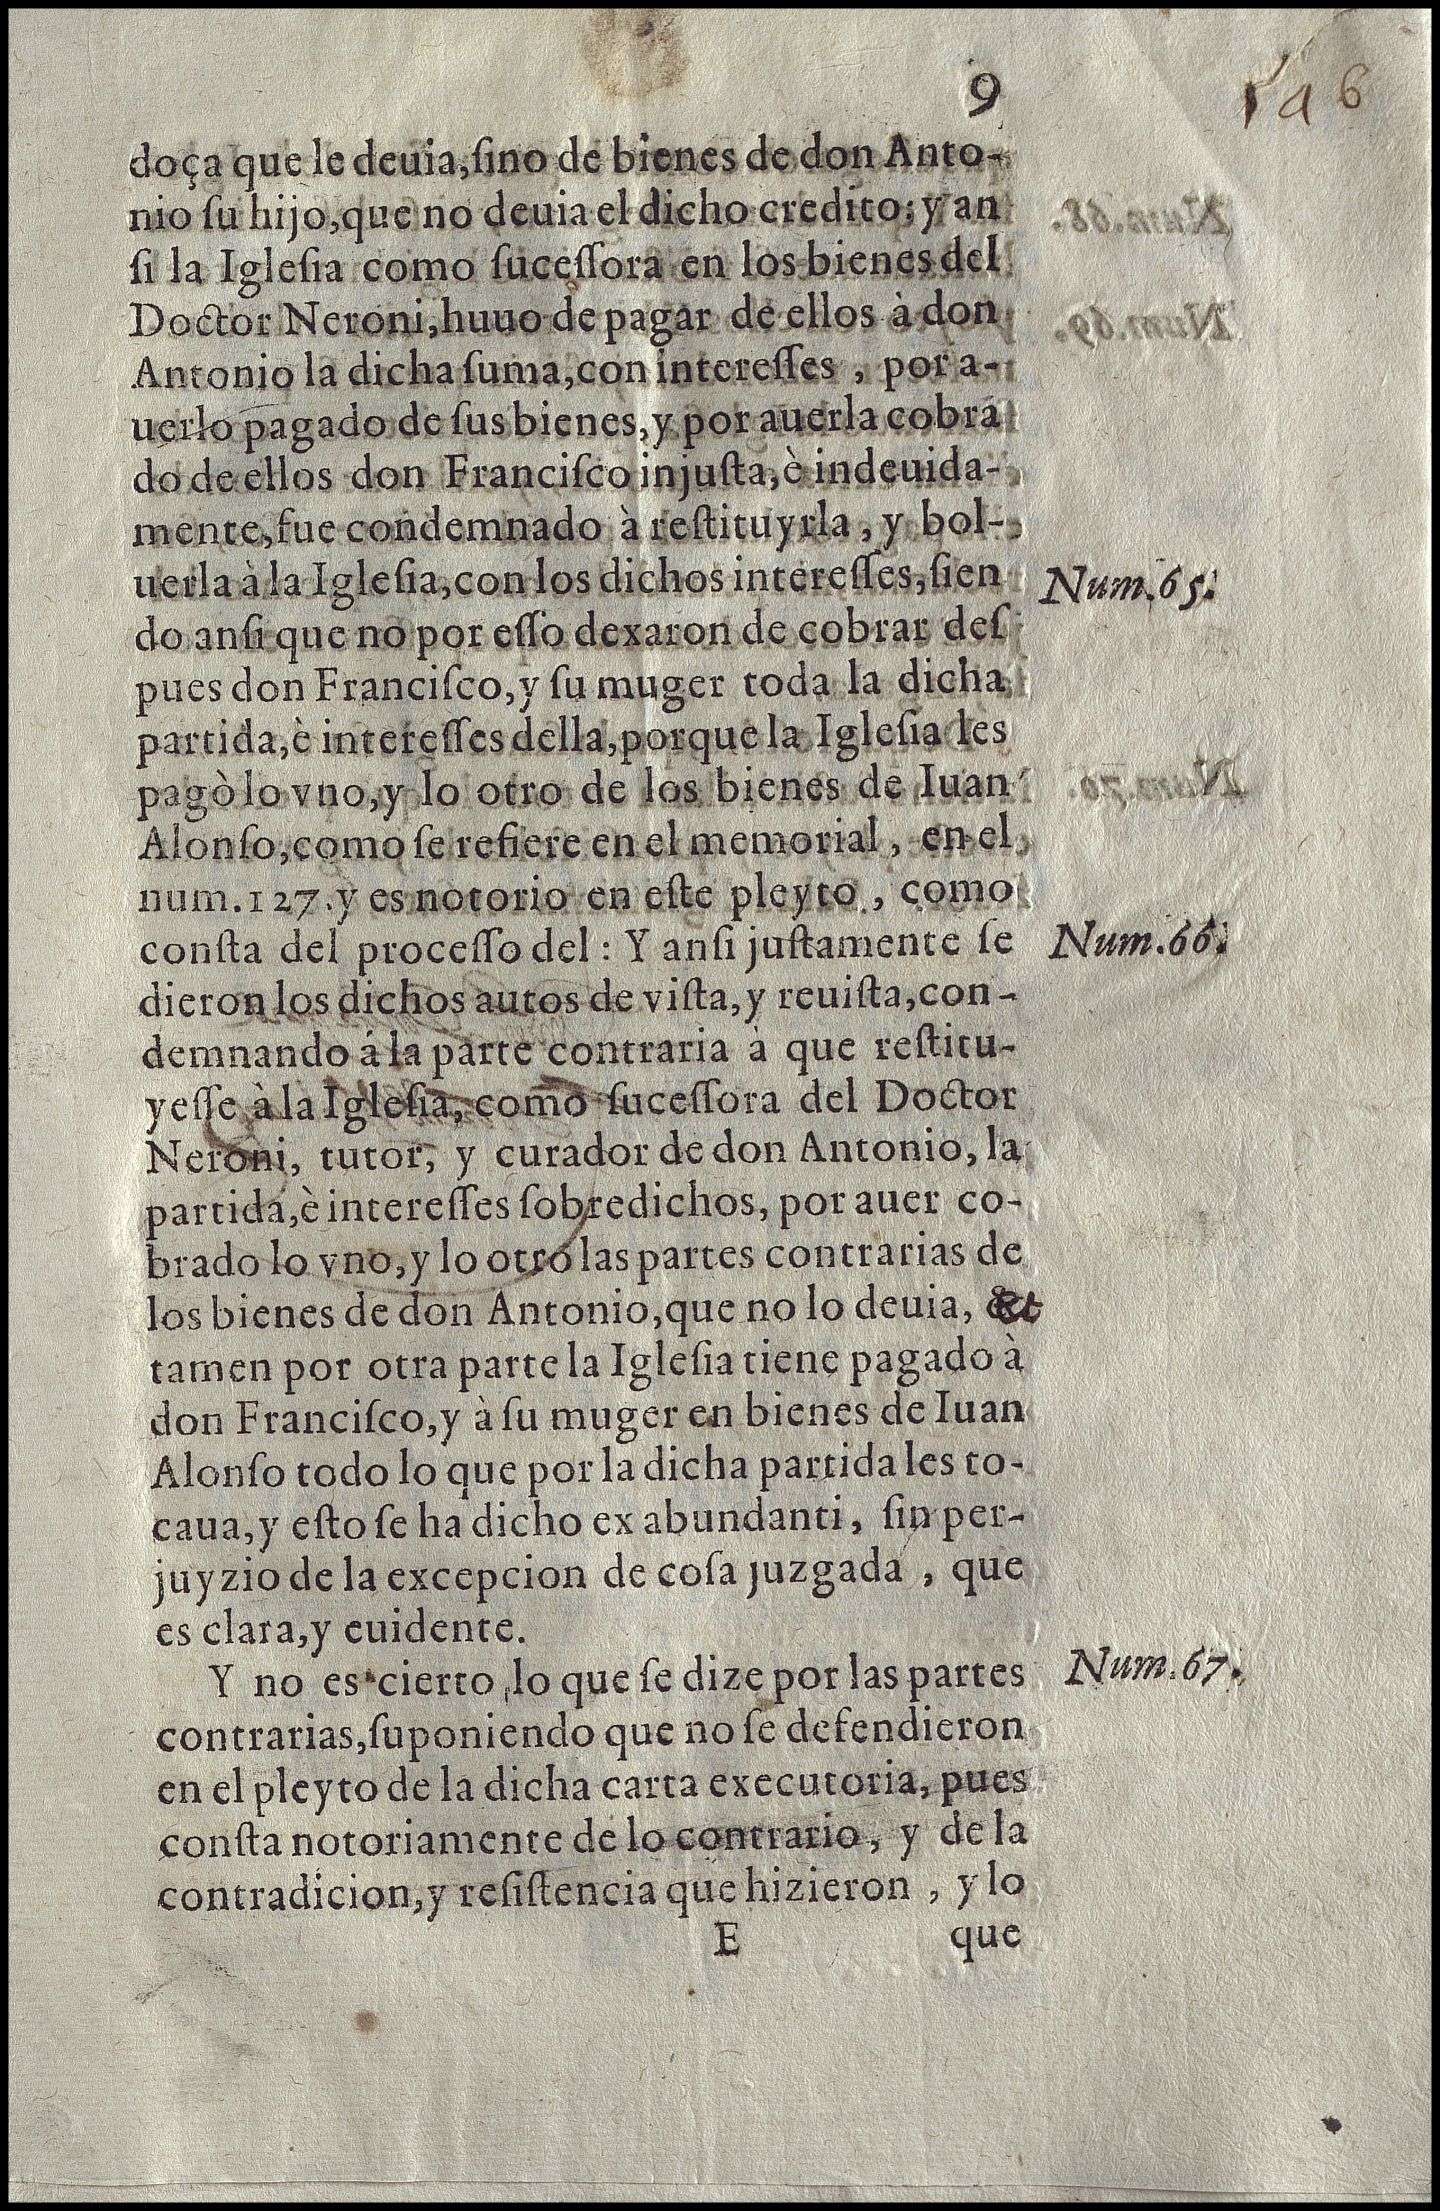 9
146
doça que le deuia, ſino de bienes de don Anto-
nio ſu hijo, que no deuia el dicho credito: y an
ſi la Igleſia como ſuceſſora en los bienes del
Doctor Neroni, huuo de pagar de ellos à don
Antonio la dicha ſuma, con intereſſes, por a-
uerlo pagado de ſus bienes, y por auerla cobra
do de ellos don Franciſco injuſta, è indeuida-
mente, fue condemnado à reſtituyrla, y bol-
uerla à la Igleſia, con los dichos intereſſes, ſien
Num. 65.
do anſi que no por eſſo dexaron de cobrar deſ
pues don Franciſco, y ſu muger toda la dicha
partida, è intereſſes della, porque la Igleſia les
pagò lo vno, y lo otro de los bienes de Iuan
Alonſo, como ſe refiere en el memorial, en el
num. 127. y es notorio en eſte pleyto, como
conſta del proceſſo del: Y anſi juſtamente ſe
Num. 66.
dieron los dichos autos de viſta, y reuiſta, con-
demnando á la parte contraria à que reſtitu-
yeſſe à la Igleſia, como ſuceſſora del Doctor
Neroni, tutor, y curador de don Antonio, la
partida, è intereſſes ſobredichos, por auer co-
brado lo vno, y lo otro las partes contrarias de
los bienes de don Antonio, que no lo deuia, &
tamen por otra parte la Igleſia tiene pagado à
don Franciſco, y à ſu muger en bienes de Iuan
Alonſo todo lo que por la dicha partida les to-
caua, y eſto ſe ha dicho ex abundanti, ſin per-
juyzio de la excepcion de coſa juzgada, que
es clara, y euidente.
Y no es cierto lo que ſe dize por las partes
Num. 67.
contrarias, ſuponiendo que no ſe defendieron
en el pleyto de la dicha carta executoria, pues
conſta notoriamente de lo contrario, y de la
contradicion, y reſiſtencia que hizieron, y lo
E
que